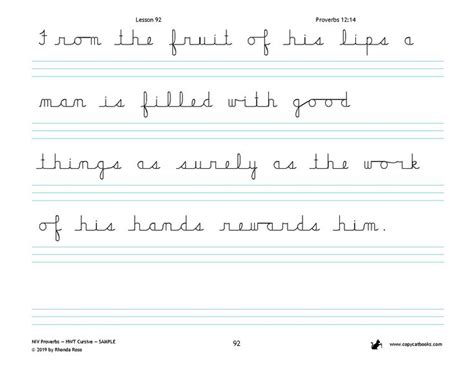 Lesson 92 Proverbs 12:14
From the fruit of his lips a
man is filled with good
things as surely as the work
of his hands rewards him.
NIV Proverbs ~ HWT Cursive ~ SAMPLE
© 2019 by Rhonda Rose
92
www.copycatbooks.com